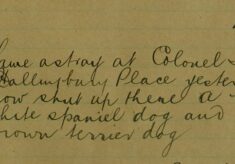 Came astray at Colonel
Hallingbury Place yester
now shut up there a
white spaniel dog and
brown terrier dog